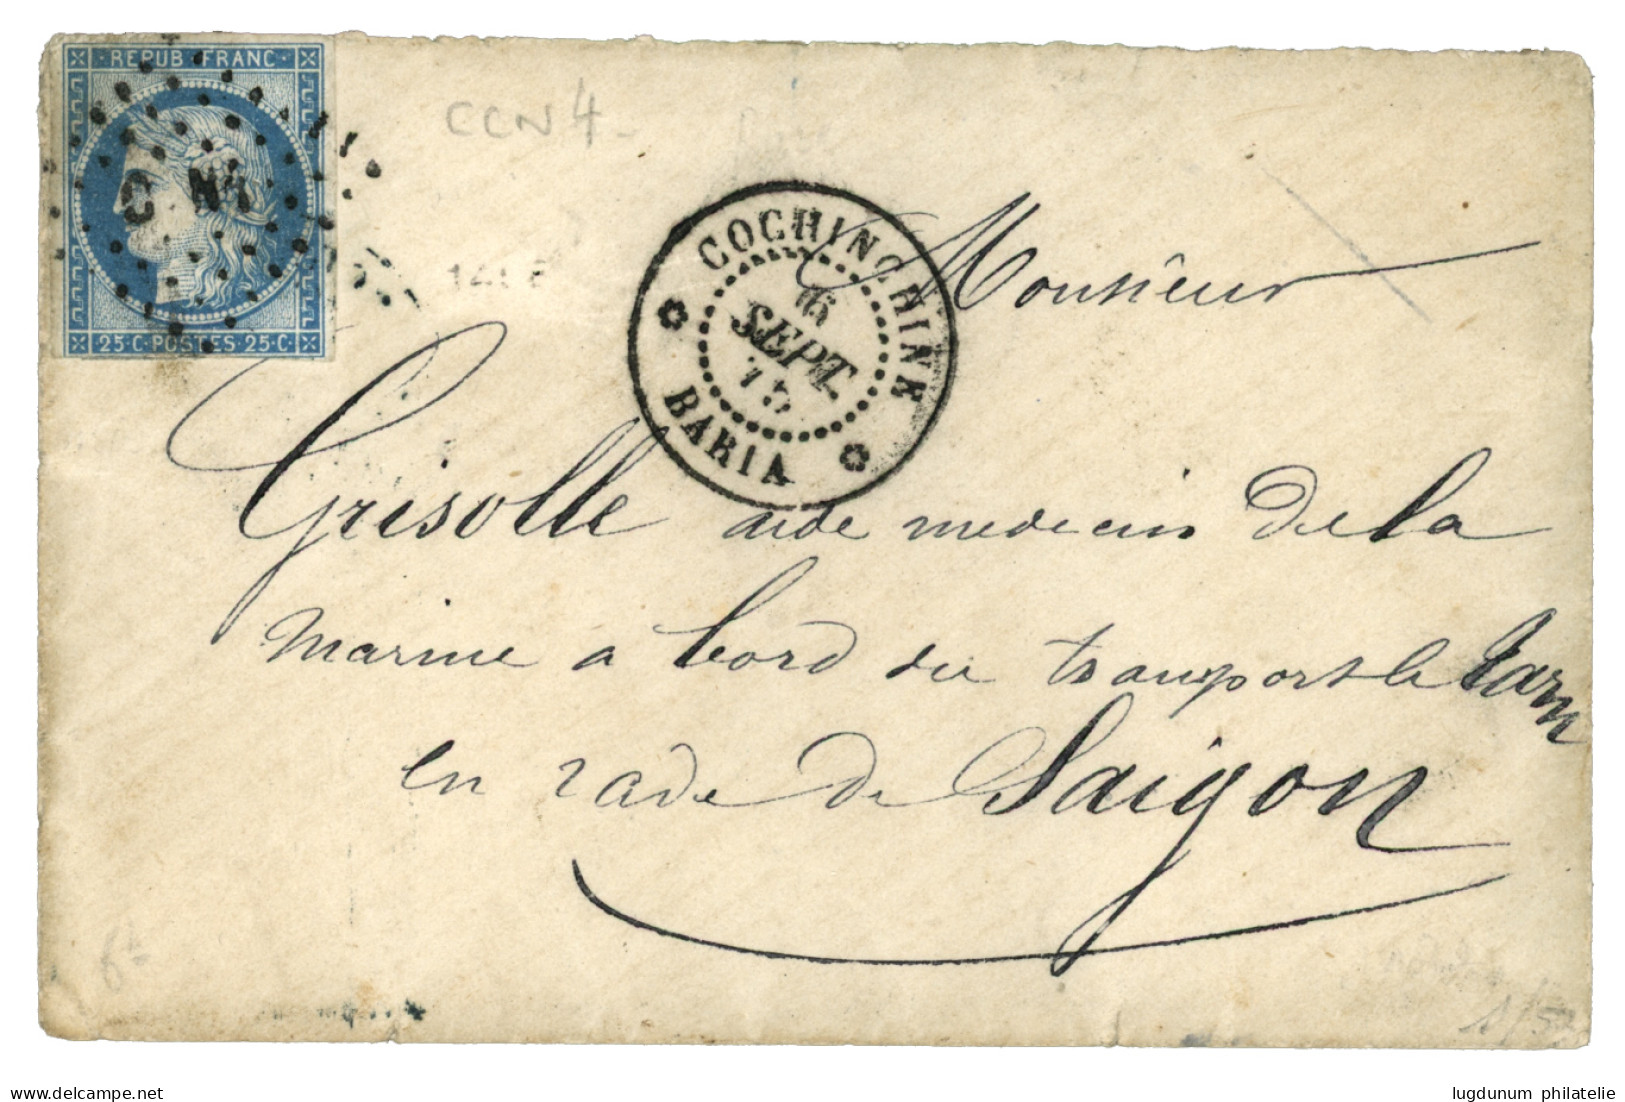 REPUB FRANC
C N4
25·C·POSTES·25·C·
CCN4
COCHINCHINE
16
SEPT.
75
BARIA
Monsieur
Grisolle aide medecin de la
marine a bord du transport le Tarn
en rade de Saigon
delcampe.net
lugdunum philatelie